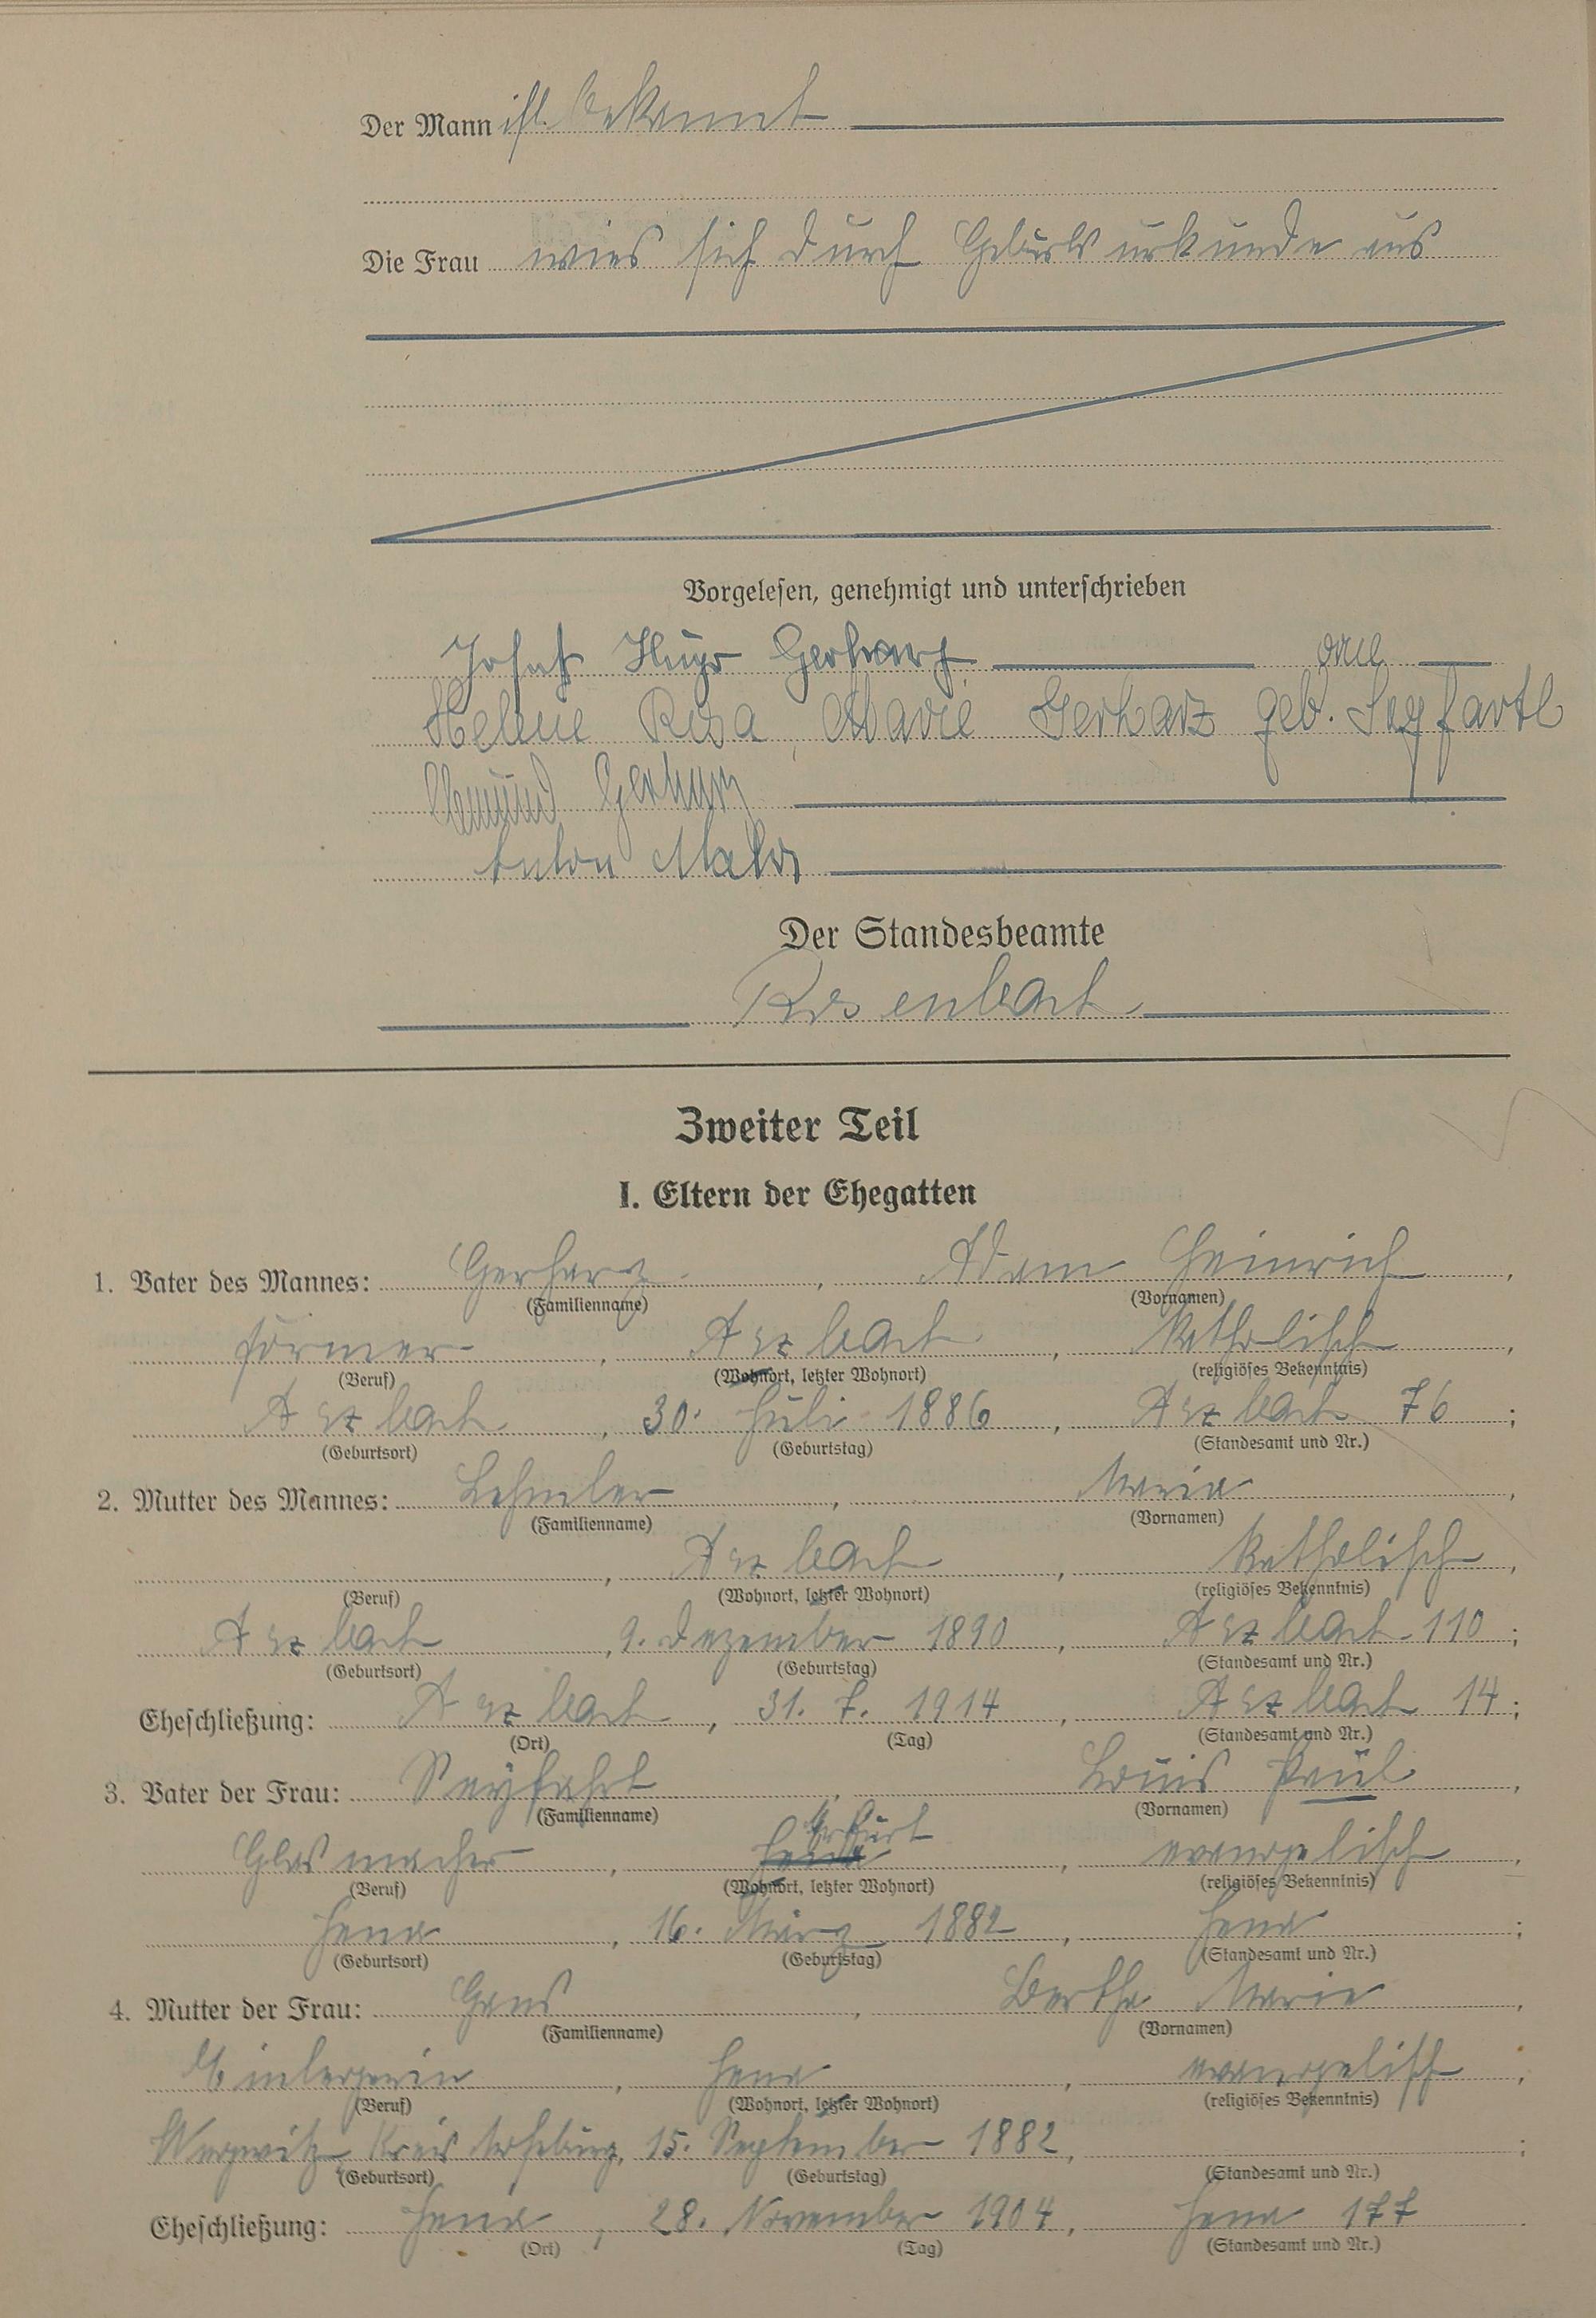 Der Mann ist bekannt
Die Frau wies sich durch Geburtsurkunde aus
Vorgelesen, genehmigt und unterschrieben
Josef Hugo Gerharz und
Helene Rosa, Marie Gerharz geb. Seyfarth
Gerharz
Anton
Der Standesbeamte
Rosenbach
Zweiter Teil
I. Eltern der Ehegatten
1. Vater des Mannes: Gerharz, Adam Heinrich,
(Familienname) (Vornamen)
Former, Arzbach, katholisch,
(Beruf) (Wohnort, letzter Wohnort) (religiöses Bekenntnis)
Arzbach, 30. Juli 1886, Arzbach 76;
(Geburtsort) (Geburtstag) (Standesamt und Nr.)
2. Mutter des Mannes: Lehmler, Maria,
(Familienname) (Vornamen)
, Arzbach, katholisch,
(Beruf) (Wohnort, letzter Wohnort) (religiöses Bekenntnis)
Arzbach, 9. Dezember 1890, Arzbach 110;
(Geburtsort) (Geburtstag) (Standesamt und Nr.)
Eheschließung: Arzbach, 31. 7. 1914, Arzbach 14;
(Ort) (Tag) (Standesamt und Nr.)
3. Vater der Frau: Seyfahrt, Louis Paul,
(Familienname) (Vornamen)
Erfurt
Glasmacher, Jena, evangelisch,
(Beruf) (Wohnort, letzter Wohnort) (religiöses Bekenntnis)
Jena, 16. März 1882, Jena;
(Geburtsort) (Geburtstag) (Standesamt und Nr.)
4. Mutter der Frau: Gans, Bertha Marie,
(Familienname) (Vornamen)
Einlegerin, Jena, evangelisch,
(Beruf) (Wohnort, letzter Wohnort) (religiöses Bekenntnis)
Kreis 15. September 1882, ;
(Geburtsort) (Geburtstag) (Standesamt und Nr.)
Eheschließung: Jena, 28. November 1904, Jena 177
(Ort) (Tag) (Standesamt und Nr.)